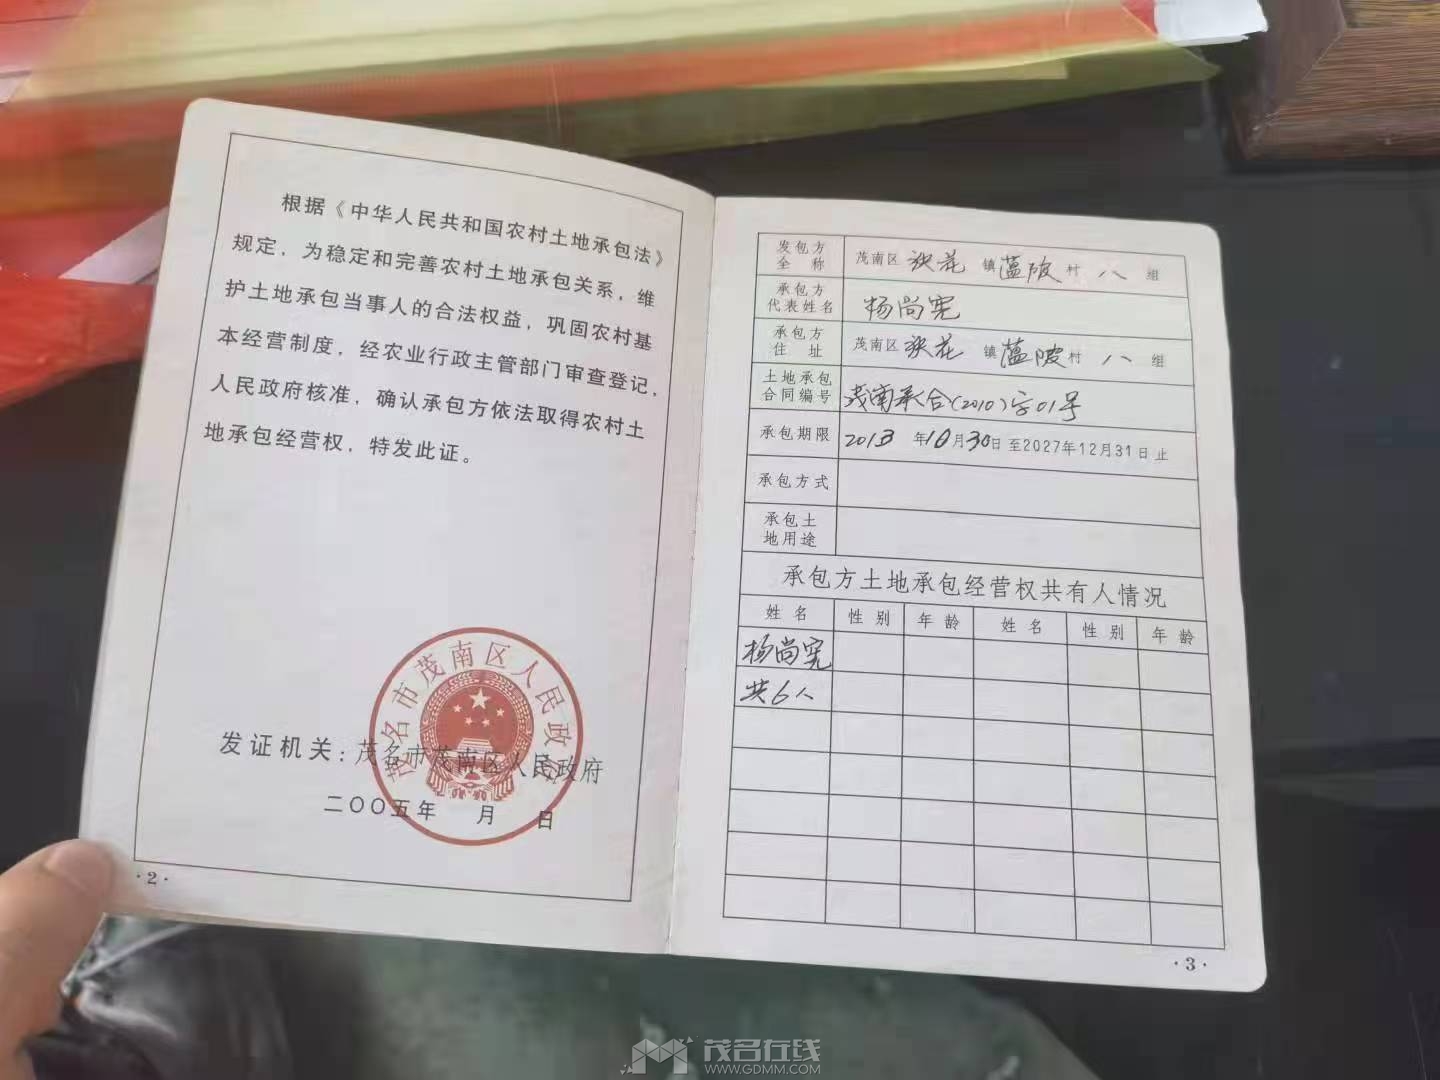 根据《中华人民共和国农村土地承包法》
规定，为稳定和完善农村土地承包关系，维
护土地承包当事人的合法权益，巩固农村基
本经营制度，经农业行政主管部门审查登记，
人民政府核准，确认承包方依法取得农村土
地承包经营权，特发此证。
茂名市茂南区人民政府
发证机关：茂名市茂南区人民政府
二〇〇五年 月 日
·2·
发包方全称 茂南区 袂花 镇 蕴陂 村 八 组
承包方代表姓名 杨尚宪
承包方住址 茂南区 袂花 镇 蕴陂 村 八 组
土地承包合同编号 茂南承合(2010)字01号
承包期限 2013 年10月30日至2027年12月31日止
承包方式
承包土地用途
承包方土地承包经营权共有人情况
姓名 性别 年龄 姓名 性别 年龄
杨尚宪
共6人
·3·
茂名在线
WWW.GDMM.COM